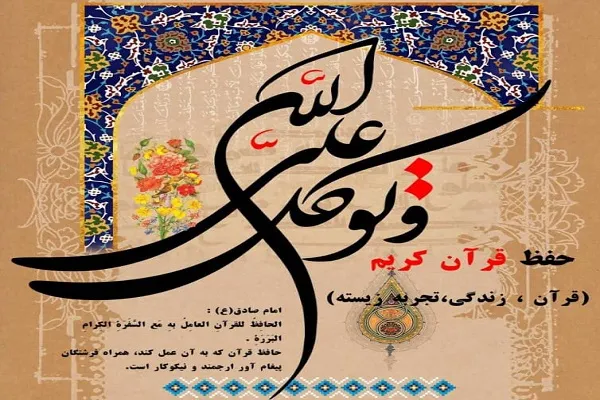 وتوکل
علی
الله
حفظ قرآن کریم
(قرآن ، زندگی،تجربه زیسته)
امام صادق(ع) :
الحافظُ للقرآنِ العاملُ بِهِ مَعَ السَّفَرَةِ الکرام
البَرَرَةِ .
حافظ قرآن که به آن عمل کند، همراه فرشتگان
پیغام آور ارجمند و نیکوکار است.